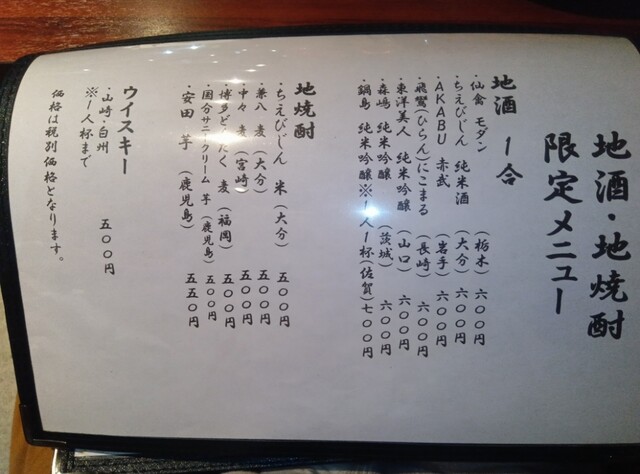 地酒・地焼酎
限定メニュー
地酒 1合
・仙禽 モダン (栃木) 六〇〇円
・ちえびじん 純米酒 (大分) 六〇〇円
・AKABU 赤武 (岩手) 六〇〇円
・飛鸞(ひらん)にこまる (長崎) 六〇〇円
・東洋美人 純米吟醸 (山口) 六〇〇円
・森嶋 純米吟醸 (茨城) 六〇〇円
・鍋島 純米吟醸※1人1杯(佐賀)七〇〇円
地焼酎
・ちえびじん 米 (大分) 五〇〇円
・兼八 麦 (大分) 五〇〇円
・中々 麦 (宮崎) 五〇〇円
・博多どんたく 麦 (福岡) 五〇〇円
・国分サニークリーム 芋 (鹿児島) 五〇〇円
・安田 芋 (鹿児島) 五五〇円
ウイスキー
・山崎・白州 五〇〇円
※1人一杯まで
価格は税別価格となります。